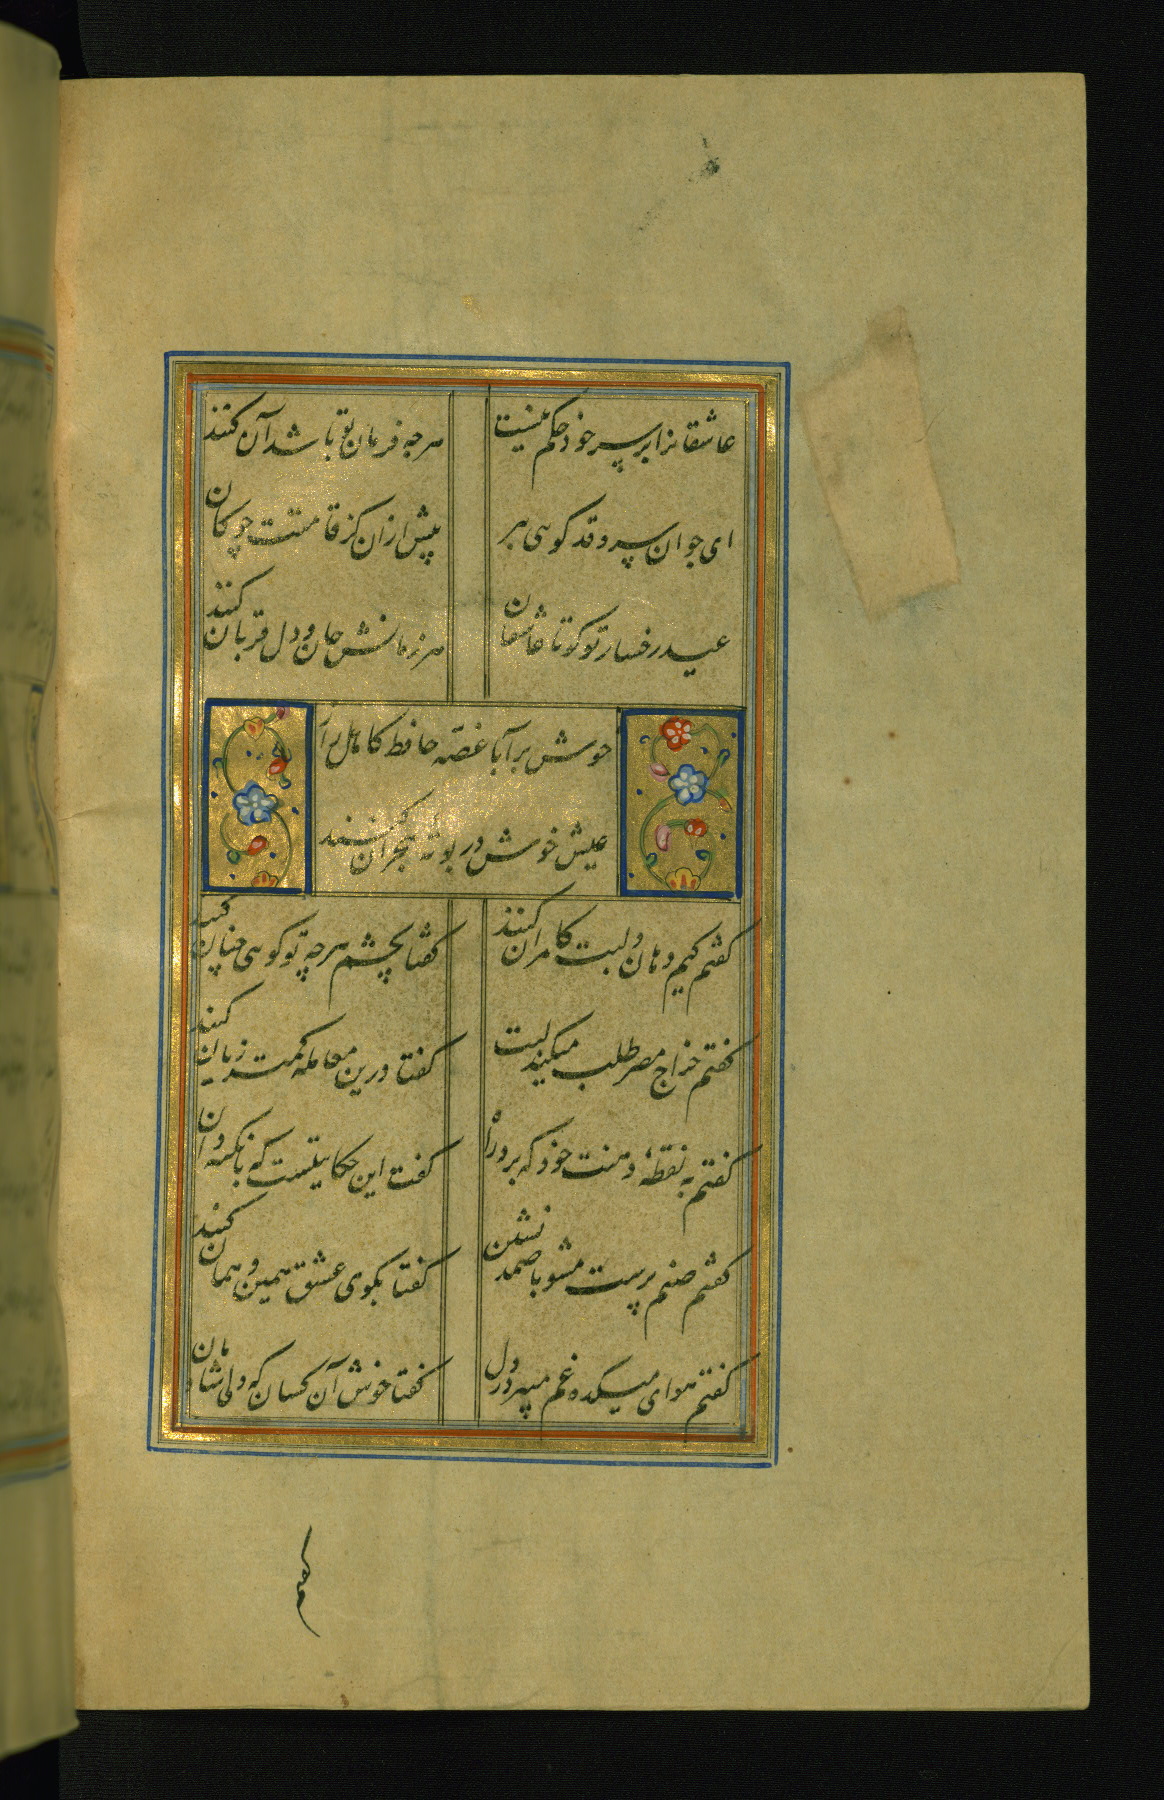 عاشقانرا بر سر خود حکم نیست
هرچه فرمان تو باشد آن کنند
ای جوان سرو قد کوئی ببر
پیش ازان کز قامتت چوکان کنند
عید رخسار تو کو تا عاشقان
هر زمانش جان و دل قربان کنند
خوش برآ با غصه حافظ کاهل راز
عیش خوش در بوته هجران کنند
کفتم کیم دهان و لبت کامران کنند
کفتا بچشم هرچه تو کوئی چنان کنند
کفتم خراج مصر طلب میکند لبت
کفتا درین معامله کمتر زیان کنند
کفتم به نقطهٔ دهنت خود که برد راه
کفت این حکایتیست که با نکته دان
کفتم صنم پرست مشو با صمد نشین
کفتا بکوی عشق همین و همان کنند
کفتم هوای میکده غم میبرد ز دل
کفتا خوش آن کسان که دلی شادمان
کفتم